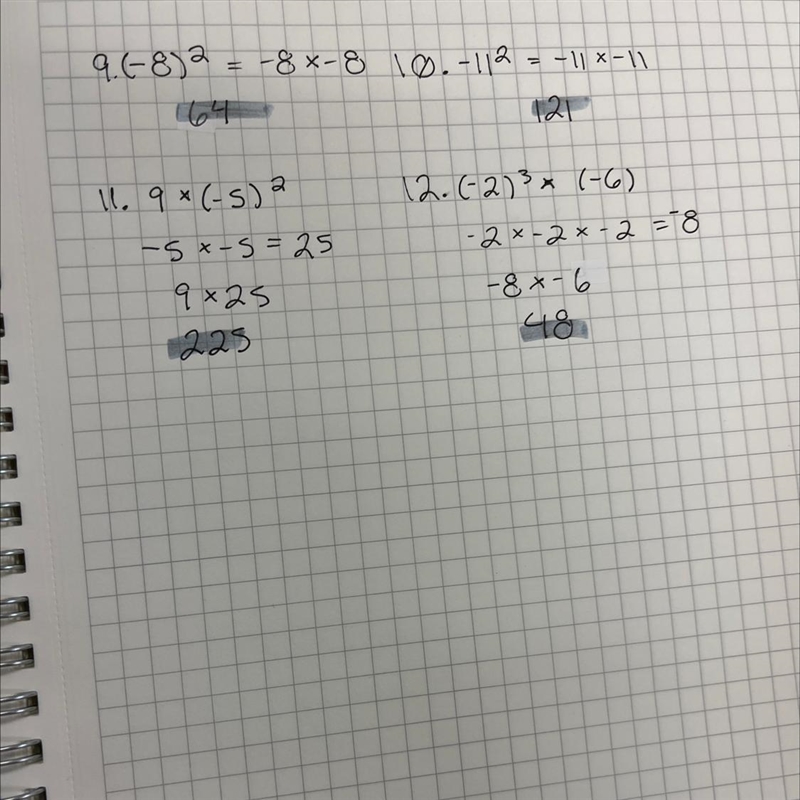 9. (-8)² = -8 × -8
64
10. -11² = -11 × -11
121
11. 9 × (-5)²
-5 × -5 = 25
9 × 25
225
12. (-2)³ × (-6)
-2 × -2 × -2 = -8
-8 × -6
48